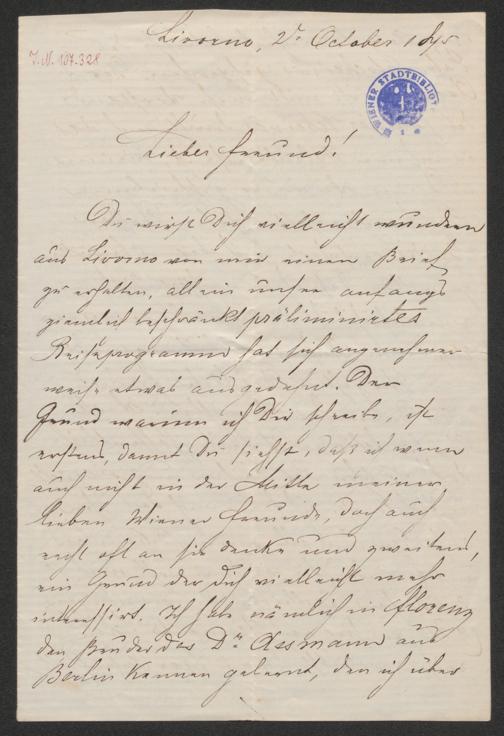 Livorno, 2r October 1875
J.N. 107.328
WIENER STADTBIBLIOT
Lieber Freund!
Du wirst Dich vielleicht wundern
aus Livorno von mir einen Brief
zu erhalten, allein unser anfangs
ziemlich beschränkt präliminirtes
Reiseprogramm hat sich angenehmer
weise etwas ausgedehnt. Der
Grund warum ich Dir schreibe, ist
erstens, damit Du siehst, daß ich wenn
auch nicht in der Mitte meiner
lieben Wiener Freunde, doch auch
recht oft an sie denke und zweitens,
ein Grund der Dich vielleicht mehr
interessirt. Ich habe nämlich in Florenz
den Bruder des Dr Assmann aus
Berlin kennen gelernt, den ich über